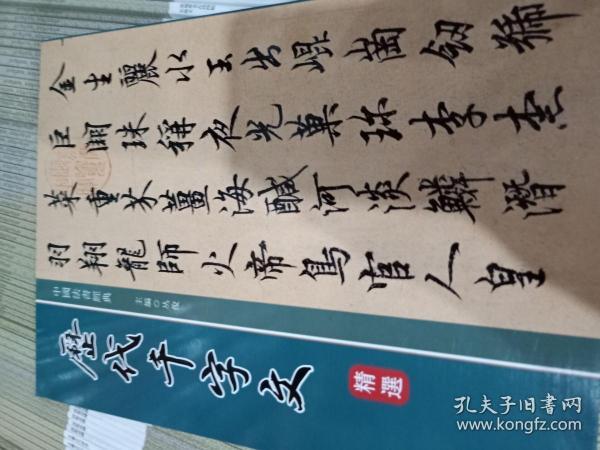 金生麗水玉出崐崗劒號
巨闕珠稱夜光菓珍李柰
菜重芥薑海鹹河淡鱗潛
羽翔龍師火帝鳥官人皇
中國法書經典
主編
歷代千字文
精選
孔夫子旧书网
www.kongfz.com